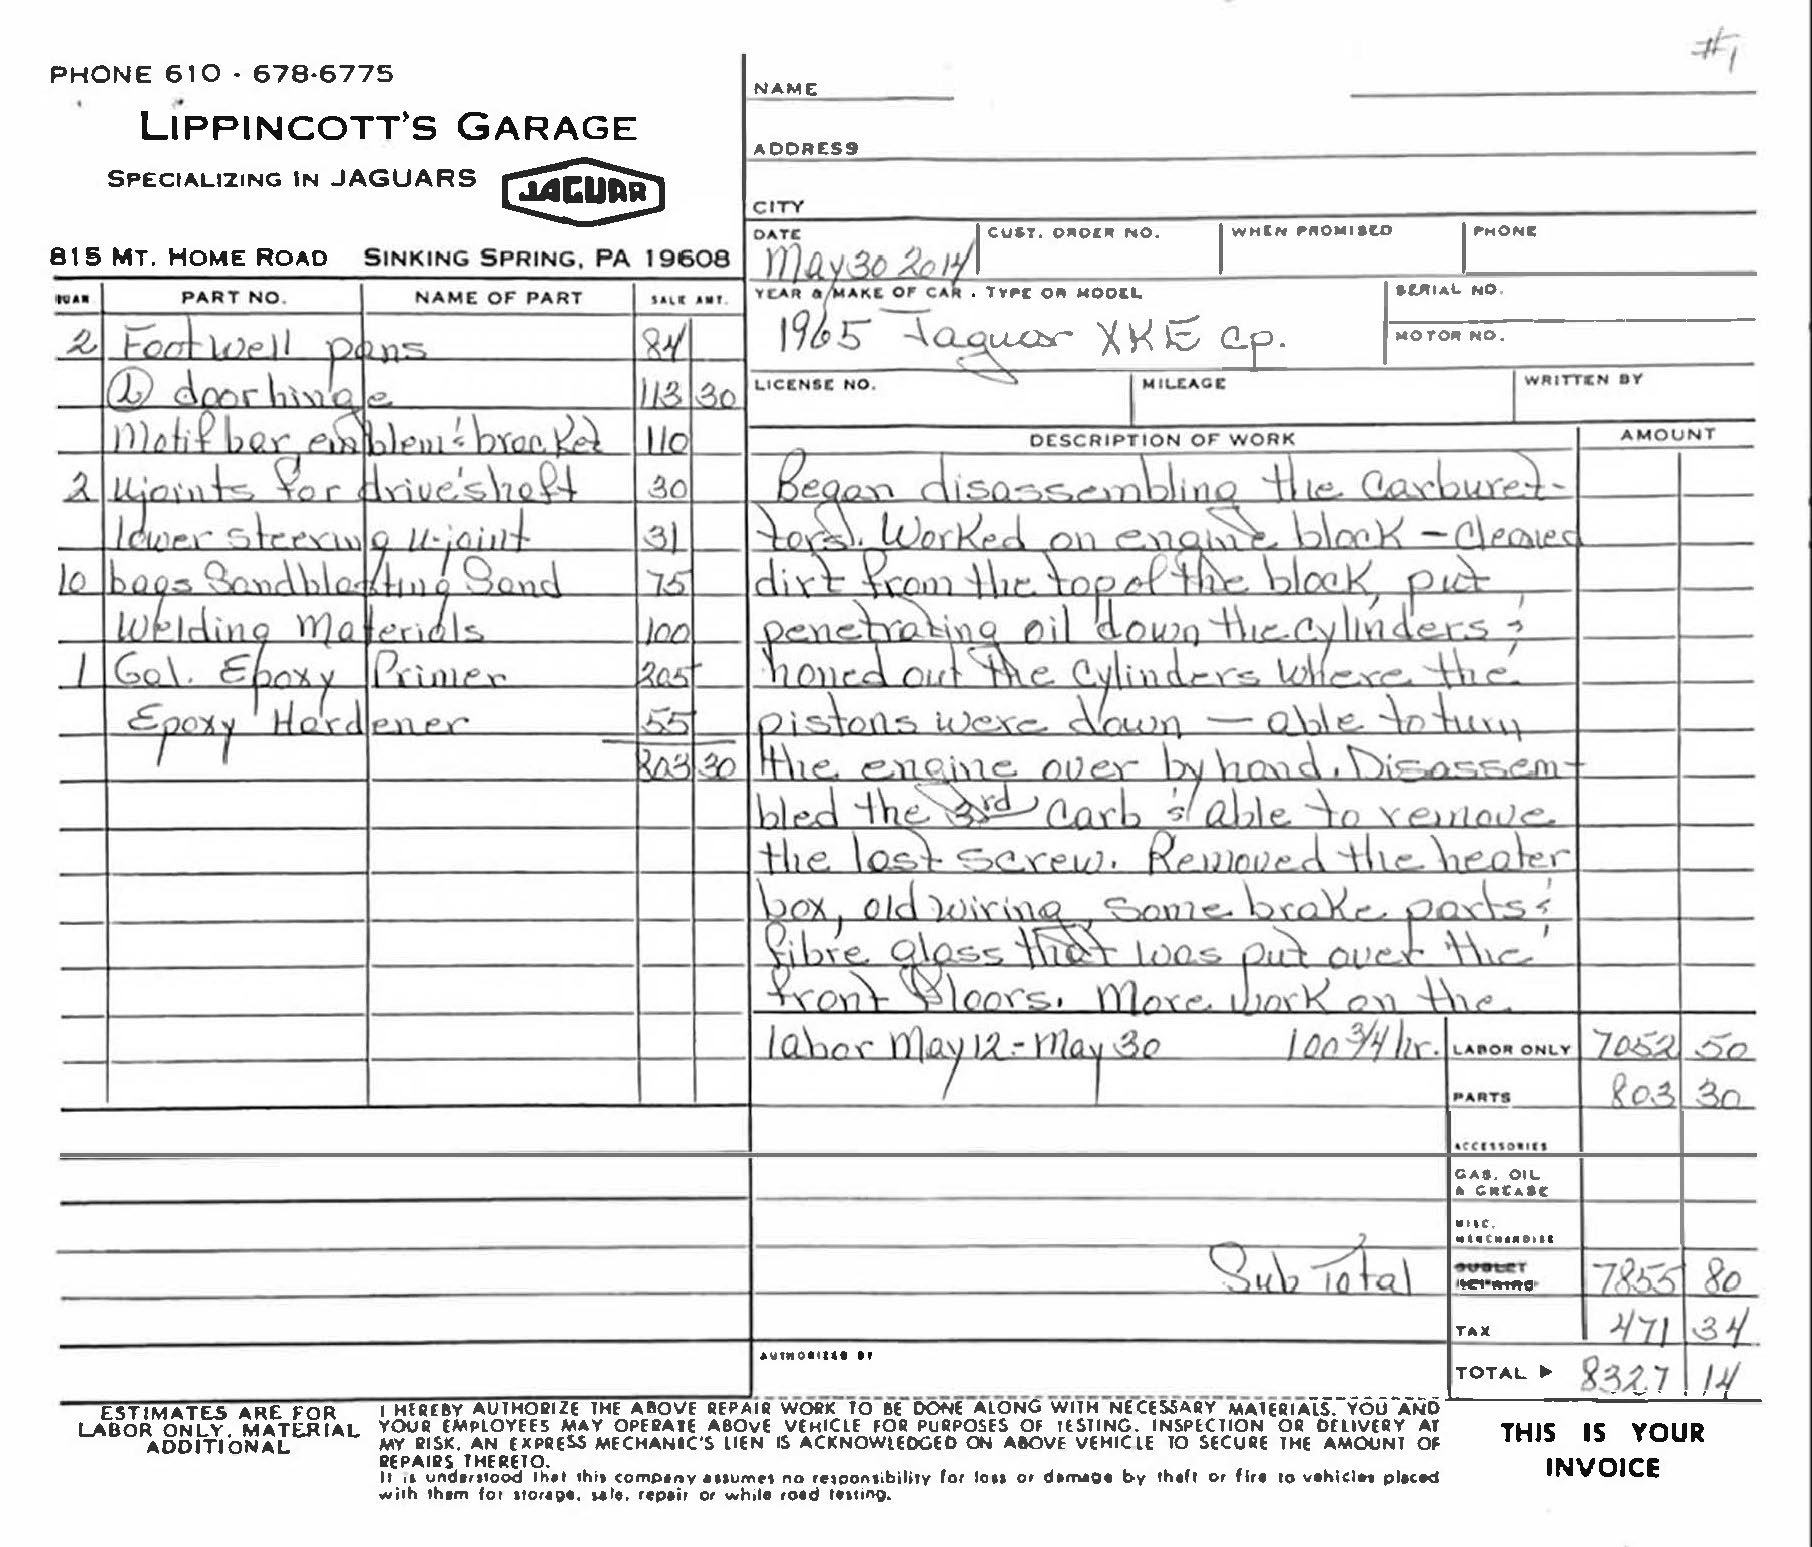 #1
PHONE 610 - 678-6775
LIPPINCOTT'S GARAGE
SPECIALIZING IN JAGUARS
JAGUAR
815 MT. HOME ROAD SINKING SPRING, PA 19608
NAME
ADDRESS
CITY
DATE CUST. ORDER NO. WHEN PROMISED PHONE
May 30 2014
YEAR & MAKE OF CAR . TYPE OR MODEL SERIAL NO.
1965 Jaguar XKE cp. MOTOR NO.
LICENSE NO. MILEAGE WRITTEN BY
QUAN PART NO. NAME OF PART SALE AMT.
2 Footwell pans 84
door hinge 113 30
Motif bar, emblem & bracket 110
2 ujoints for driveshaft 30
lower steering u-joint 31
10 bags Sandblasting Sand 75
Welding Materials 100
1 Gal. Epoxy Primer 205
Epoxy Hardener 55
803 30
DESCRIPTION OF WORK AMOUNT
Began disassembling the Carburet-
tors. Worked on engine block - cleaned
dirt from the top of the block, put
penetrating oil down the cylinders &
honed out the cylinders where the
pistons were down - able to turn
the engine over by hand. Disassem-
bled the 3rd carb & able to remove
the last screw. Removed the heater
box, old wiring, some brake parts &
fibre glass that was put over the
front floors. More work on the
labor May 12 - May 30 100 3/4 hr. LABOR ONLY 7052 50
PARTS 803 30
ACCESSORIES
GAS, OIL
& GREASE
MISC.
MERCHANDISE
Sub Total SUBLET REPAIRS 7855 80
TAX 471 34
AUTHORIZED BY
TOTAL ▶ 8327 14
ESTIMATES ARE FOR
LABOR ONLY, MATERIAL
ADDITIONAL
I HEREBY AUTHORIZE THE ABOVE REPAIR WORK TO BE DONE ALONG WITH NECESSARY MATERIALS. YOU AND
YOUR EMPLOYEES MAY OPERATE ABOVE VEHICLE FOR PURPOSES OF TESTING, INSPECTION OR DELIVERY AT
MY RISK. AN EXPRESS MECHANIC'S LIEN IS ACKNOWLEDGED ON ABOVE VEHICLE TO SECURE THE AMOUNT OF
REPAIRS THERETO.
It is understood that this company assumes no responsibility for loss or damage by theft or fire to vehicles placed
with them for storage, sale, repair or while road testing.
THIS IS YOUR
INVOICE